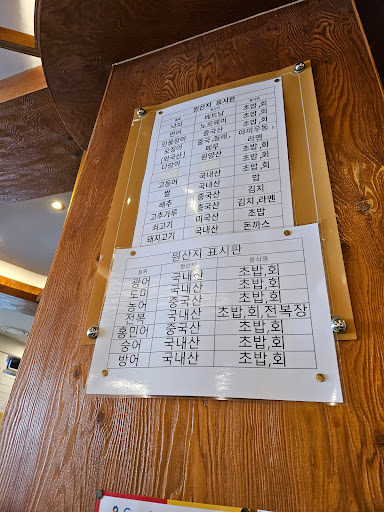 원산지 표시판
낙지 베트남 초밥,회
연어 노르웨이 초밥,회
민물장어 중국산 초밥
오징어 중국,칠레, 야끼우동,
(외국산) 페루 라멘
다랑어 원양산 초밥,회
초밥,회
고등어 국내산 초밥,회
쌀 국내산 밥
배추 중국산 김치
고추가루 중국산 김치,라멘
쇠고기 미국산 초밥
돼지고기 국내산 돈까스
원산지 표시판
품목 원산지 음식명
광어 국내산 초밥,회
도미 국내산 초밥,회
농어 중국산 초밥,회
전복 국내산 초밥,회,전복장
홍민어 중국산 초밥,회
숭어 국내산 초밥,회
방어 국내산 초밥,회